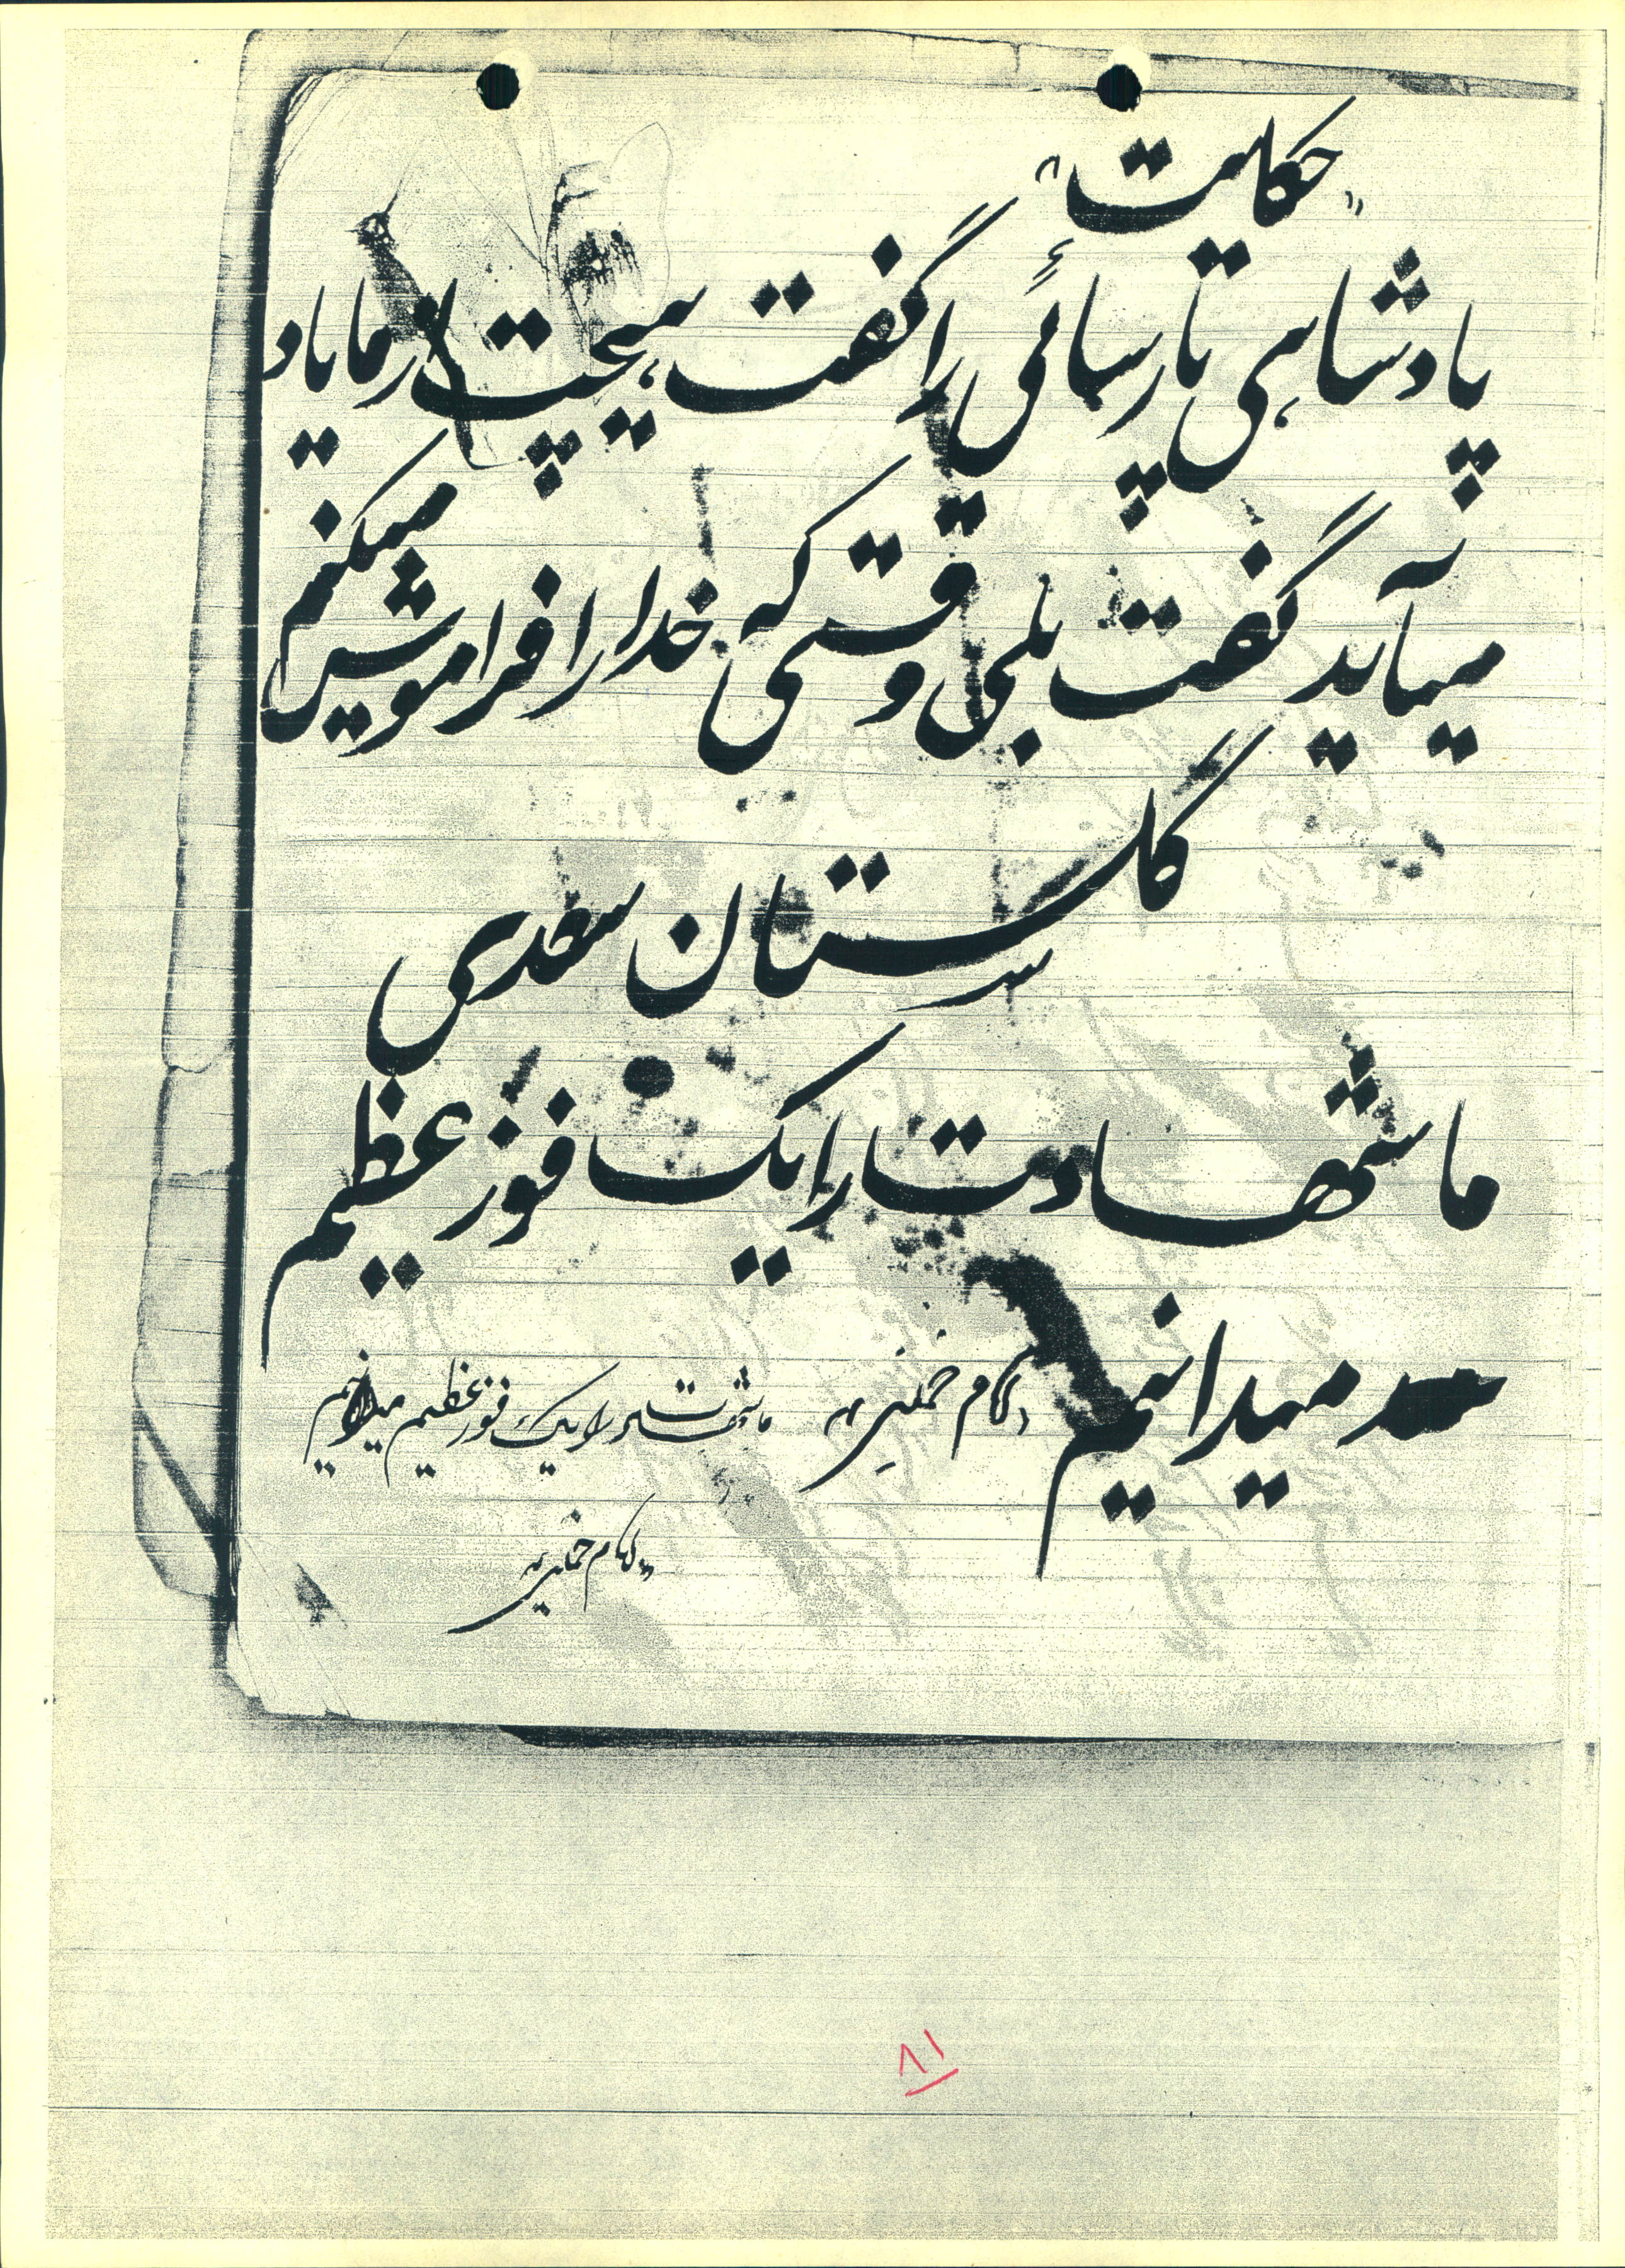 "حکایت"
پادشاهی پارسائی را گفت هیچت از ما یاد
میآید گفت بلی وقتی که خدا را فراموش میکنم
گلستان سعدی
ما شهادت را یک فوز عظیم
میدانیم "امام خمینی"
ما شهادت را یک فوز عظیم میدانیم
"امام خمینی"
۸۱